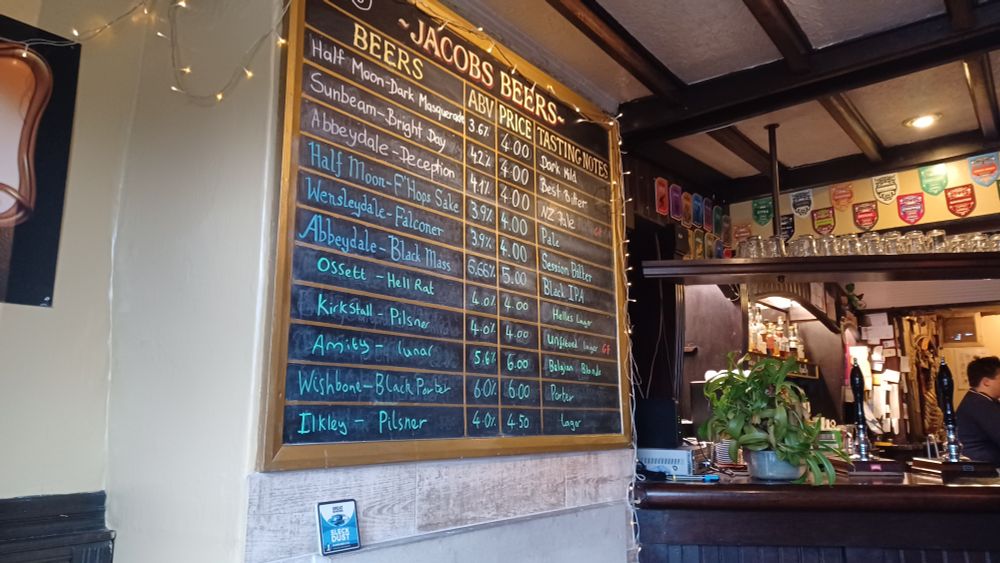 ~JACOBS BEERS~
BEERS ABV PRICE TASTING NOTES
Half Moon-Dark Masquerade 3.6% 4.00 Dark Mild
Sunbeam-Bright Day 4.2% 4.00 Best Bitter
Abbeydale-Deception 4.1% 4.00 NZ Pale GF
Half Moon-F'Hops Sake 3.9% 4.00 Pale
Wensleydale-Falconer 3.9% 4.00 Session Bitter
Abbeydale-Black Mass 6.66% 5.00 Black IPA
Ossett - Hell Rat 4.0% 4.00 Helles Lager
Kirkstall - Pilsner 4.0% 4.00 Unfined Lager GF
Amity - Lunar 5.6% 6.00 Belgian Blonde
Wishbone-Black Porter 6.0% 6.00 Porter
Ilkley - Pilsner 4.0% 4.50 Lager
SLECK
DUST